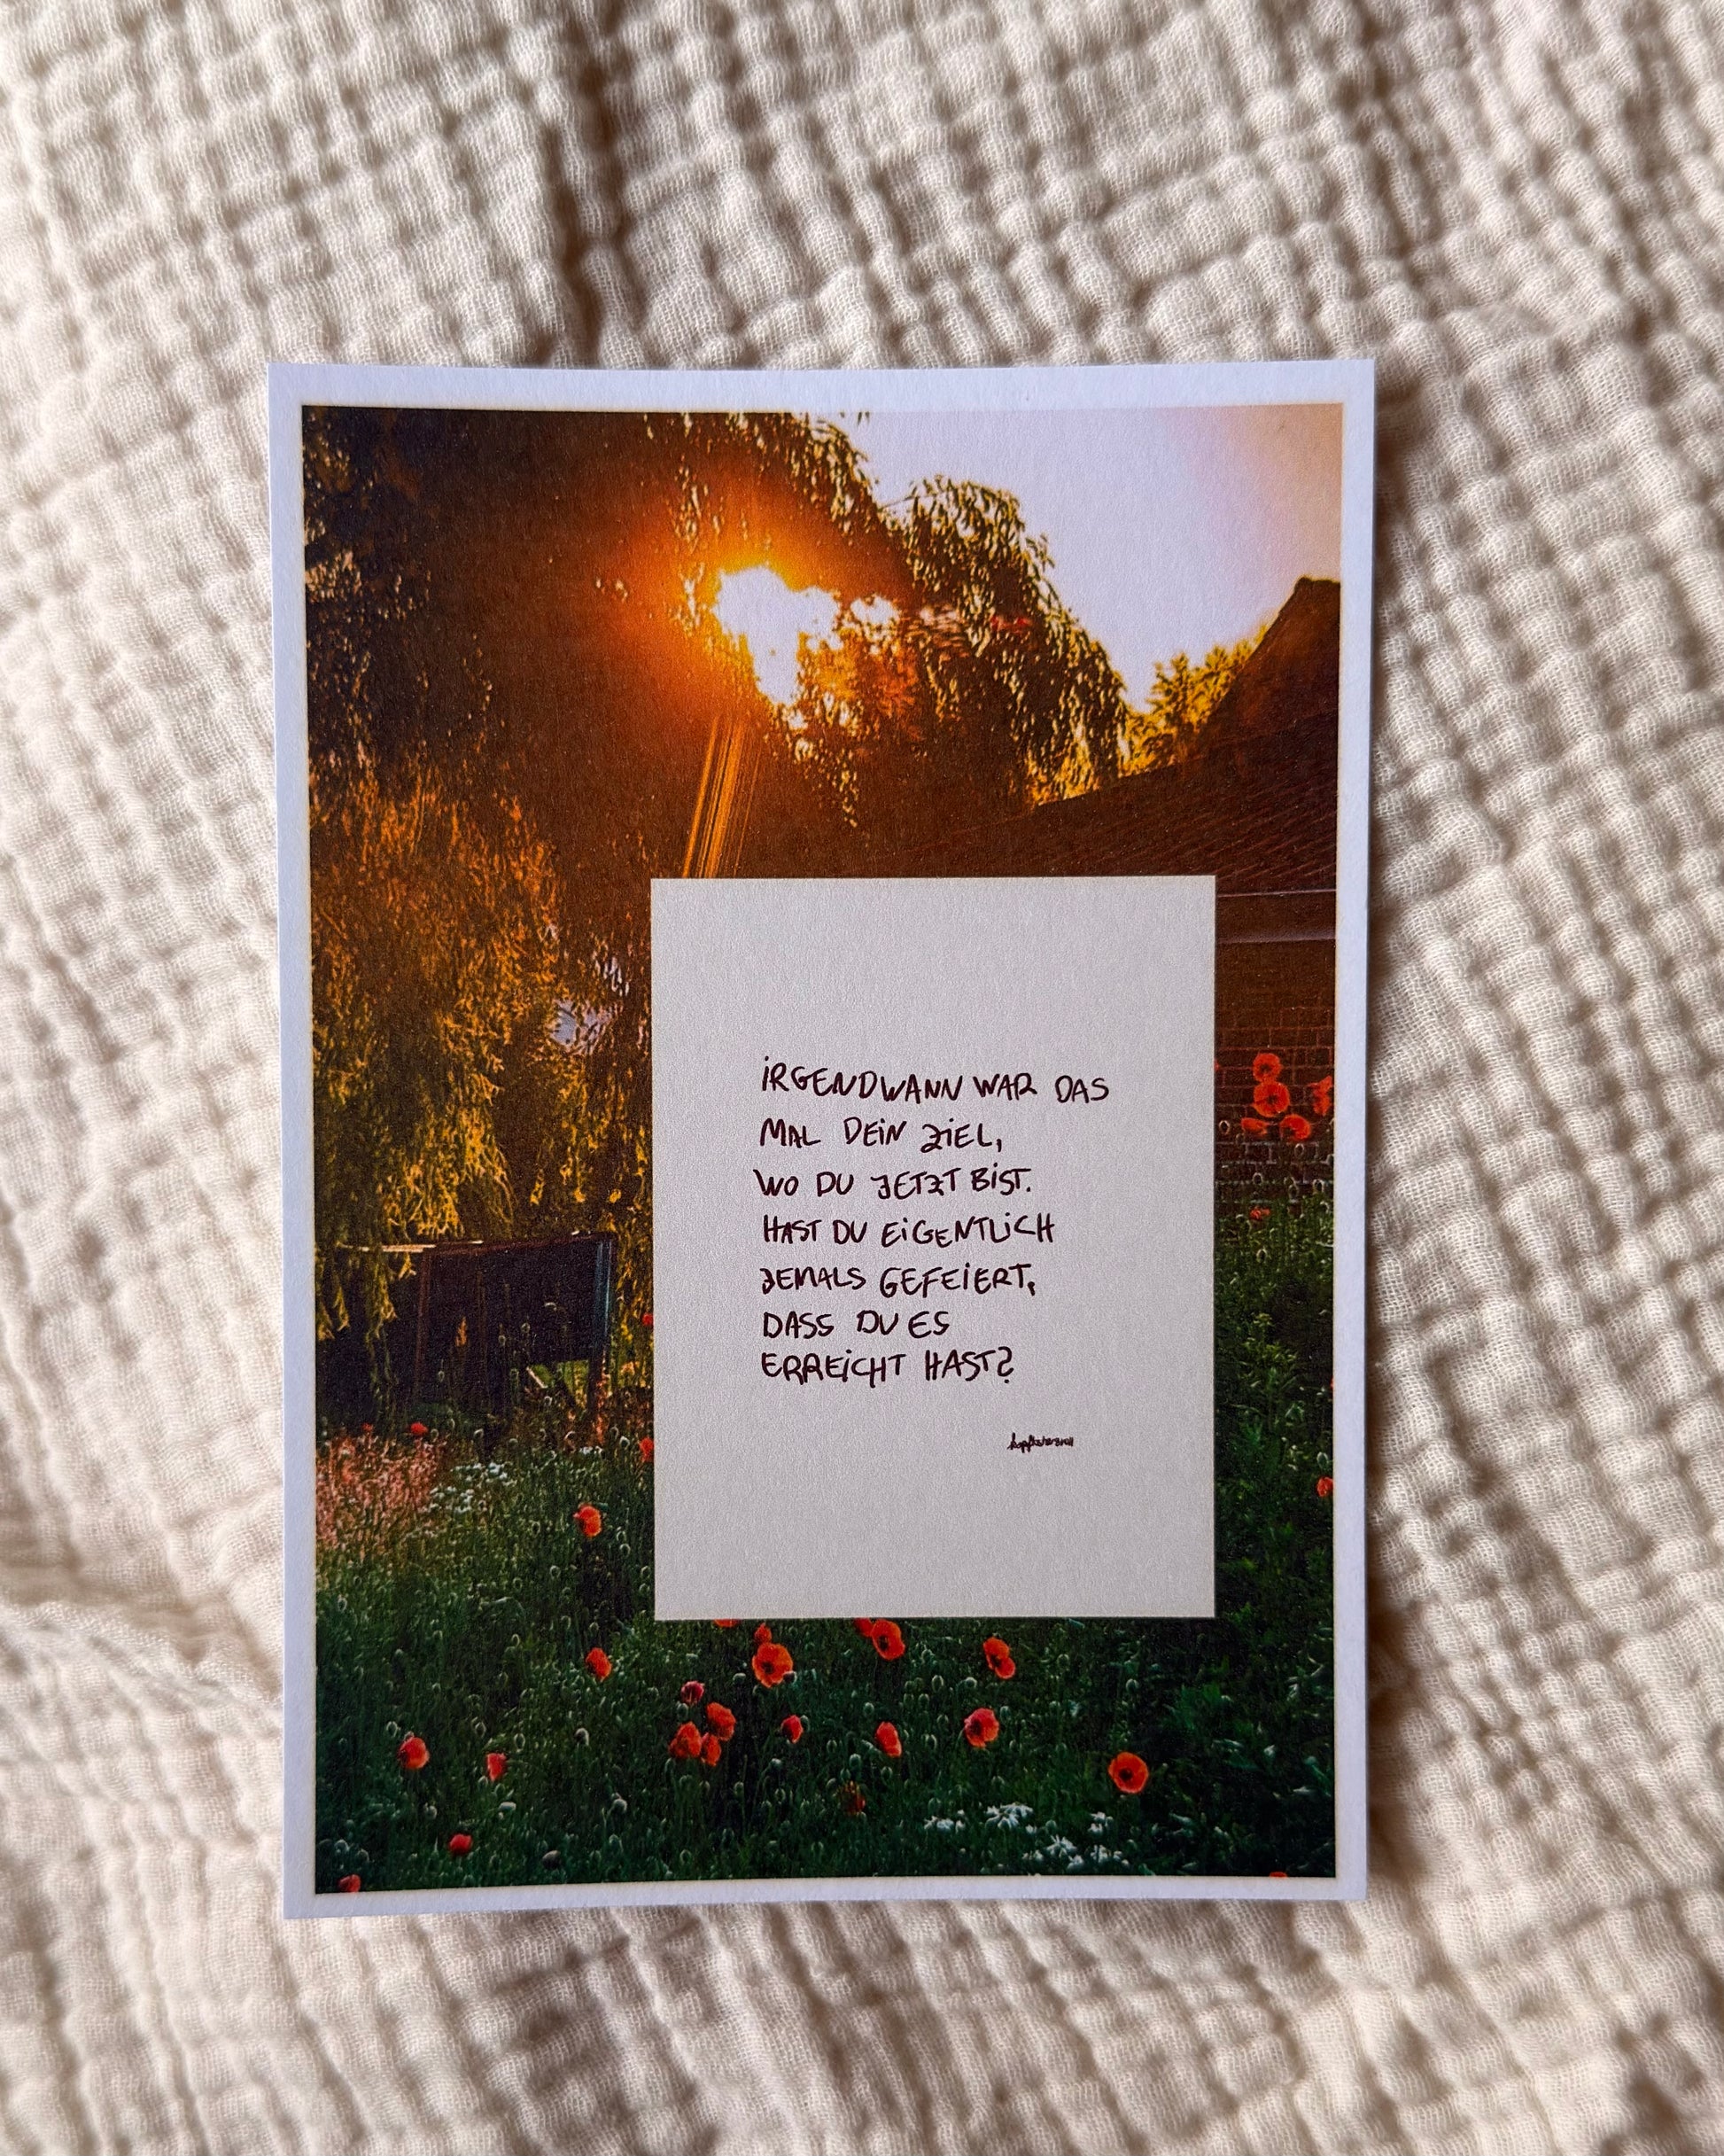 iRGENDWANN WAR DAS
MAL DEiN ZiEL,
WO DU JETZT BiST.
HAST DU EiGENTLiCH
JEMALS GEFEiERT,
DASS DU ES
ERREiCHT HAST?